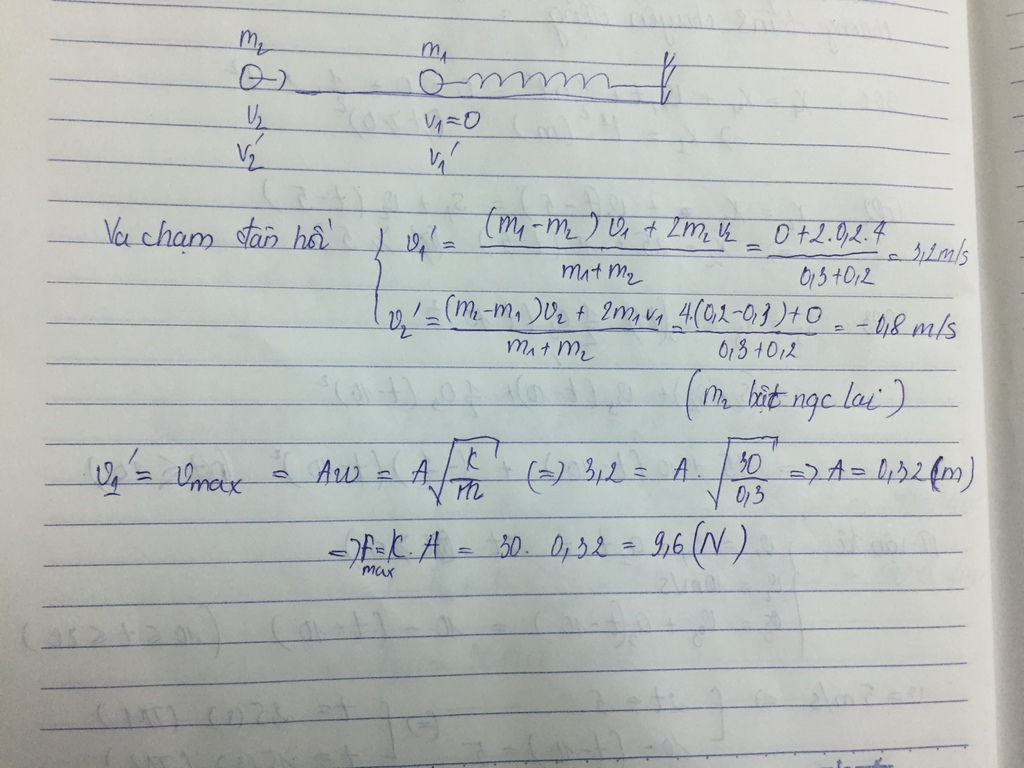 m₂ m₁
v₂ v₁=0
v₂' v₁'
Va chạm đàn hồi { v₁' = ((m₁-m₂)v₁ + 2m₂v₂)/(m₁+m₂) = (0+2.0,2.4)/(0,3+0,2) = 3,2m/s
v₂' = ((m₂-m₁)v₂ + 2m₁v₁)/(m₁+m₂) = (4(0,2-0,3)+0)/(0,3+0,2) = -0,8 m/s
(m₂ bật ngc lại)
v₁' = vmax = Aω = A√(k/m) (=) 3,2 = A.√(30/0,3) => A = 0,32 (m)
=> Fmax = K.A = 30. 0,32 = 9,6 (N)